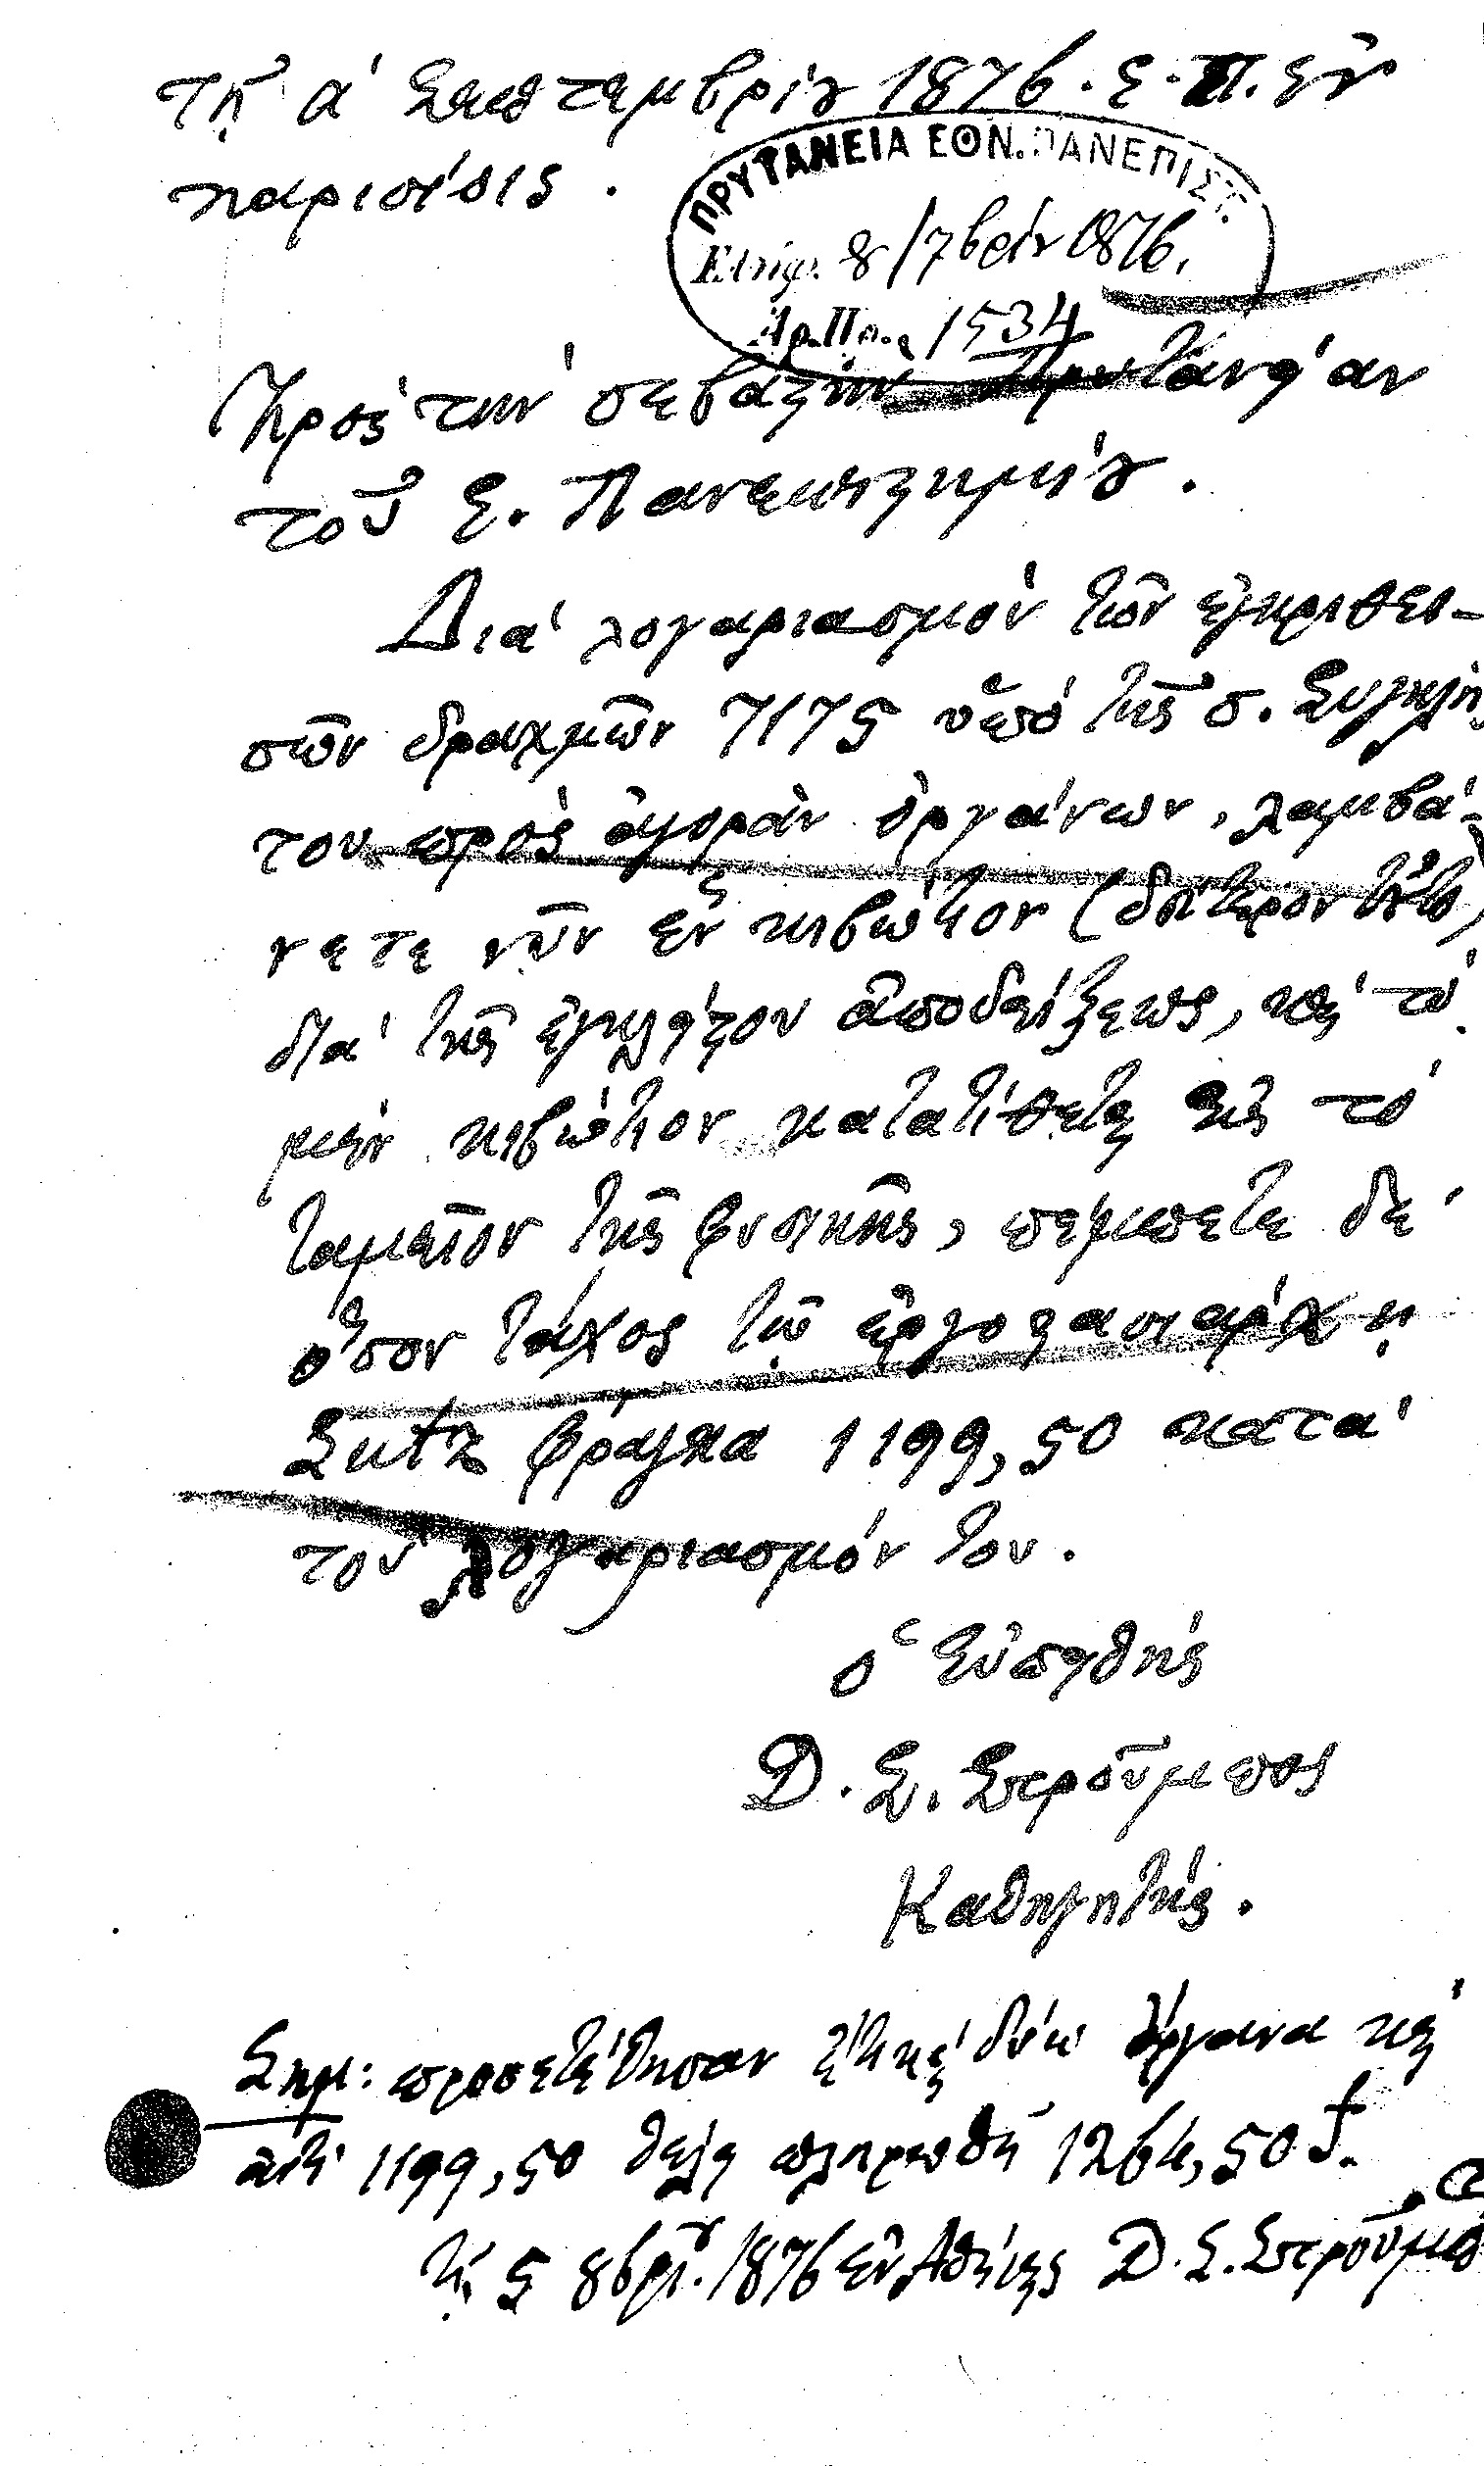 τῇ α' Σεπτεμβρίου 1876. ἐ. π. ἐν
Παρισίοις.
ΠΡΥΤΑΝΕΙΑ ΕΘΝ. ΠΑΝΕΠΙΣΤ.
Ελήφ. 8/7βρίου 1876.
Αρ. Πρ. 1534
Πρὸς τὴν σεβαστὴν Πρυτανείαν
τοῦ Ἐ. Πανεπιστημίου.
Διὰ λογαριασμὸν τῶν ἐγκριθει-
σῶν δραχμῶν 7175 ὑπὸ τῆς σ. Συγκλή
του πρὸς ἀγορὰν ὀργάνων, λαμβά-
νετε νῦν ἓν κιβώτιον (δεύτερον τοῦτο)
διὰ τῆς ἐγκλείστου ἀποδείξεως, καὶ τὸ
μὲν κιβώτιον κατατίθεται εἰς τὸ
ταμεῖον τῆς φυσικῆς, πέμπετε δὲ
ὅσον τάχος τῷ ἐργοστασιάρχῃ
φράγκα 1199,50 κατὰ
τὸν λογαριασμόν του.
ὁ εὐπειθὴς
Δ. Σ. Στρούμπος
Καθηγητής.
Σημ: προσετέθησαν ἔτι καὶ δύω ὄργανα καὶ
ἀντὶ 1199,50 θέλει πληρωθῆ 1264,50 f.
τῇ 5 8βρίου. 1876 ἐν Ἀθήναις Δ. Σ. Στρούμπο